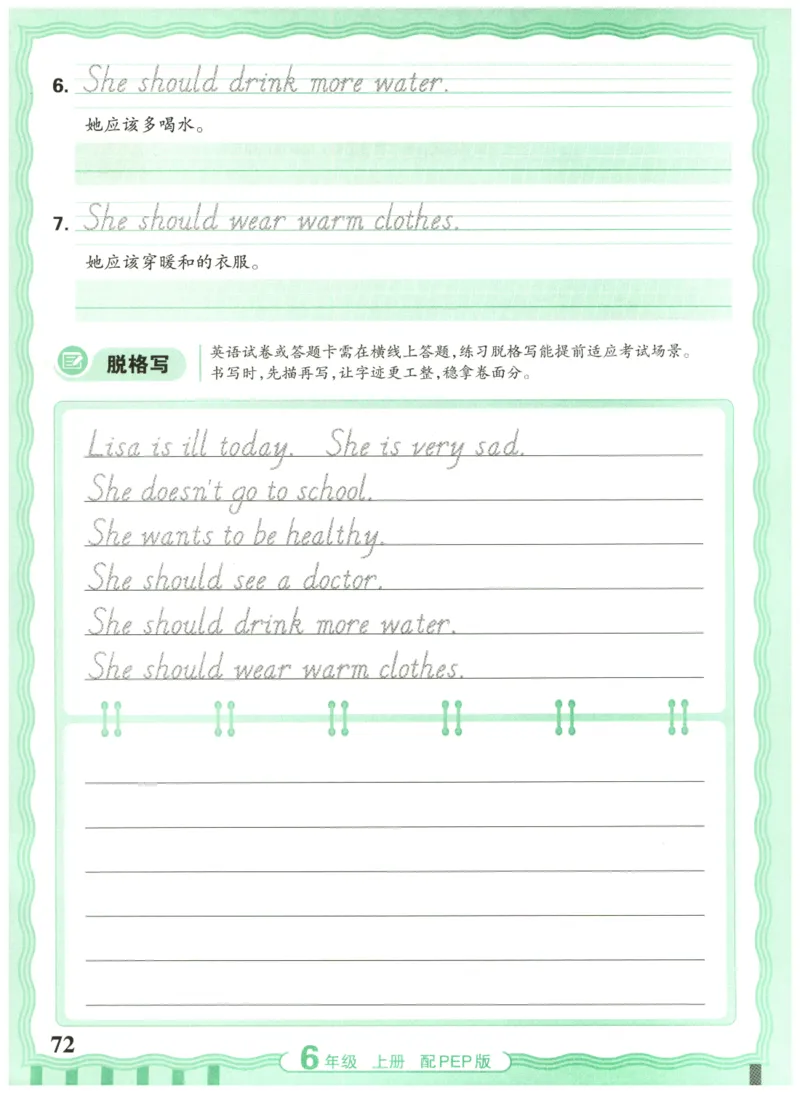 6. She should drink more water.
她应该多喝水。
7. She should wear warm clothes.
她应该穿暖和的衣服。
脱格写
英语试卷或答题卡需在横线上答题,练习脱格写能提前适应考试场景。
书写时,先描再写,让字迹更工整,稳拿卷面分。
Lisa is ill today. She is very sad.
She doesn't go to school.
She wants to be healthy.
She should see a doctor.
She should drink more water.
She should wear warm clothes.
72
6年级 上册 配PEP版